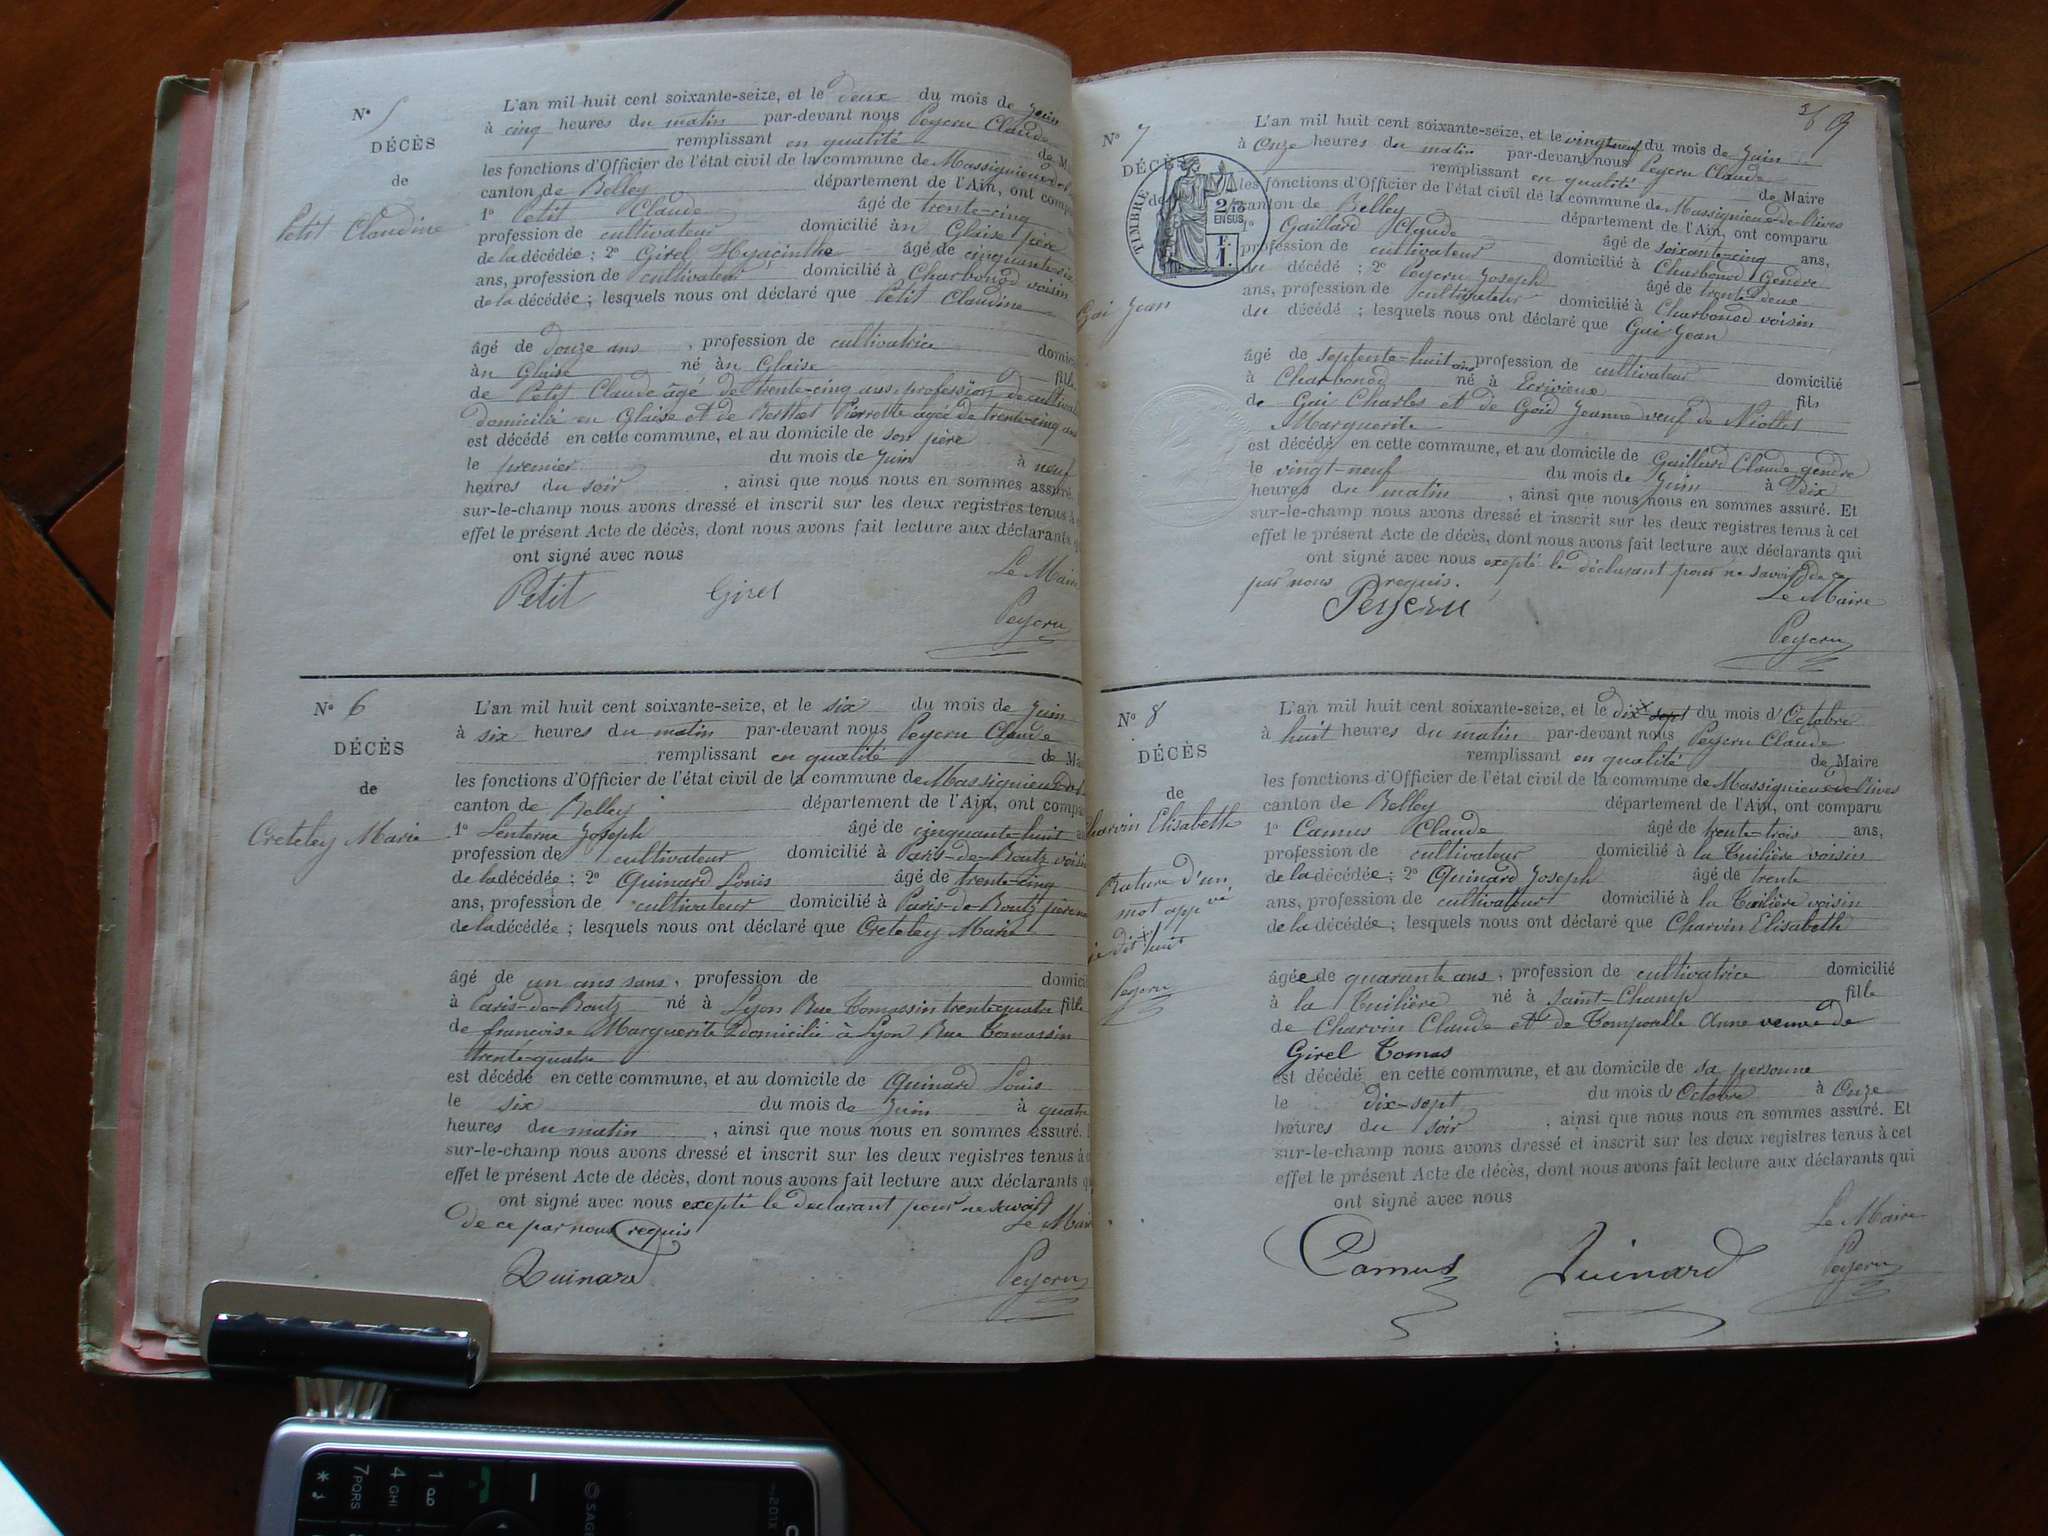 N° 5
DÉCÈS
de
Petit Claudine
L'an mil huit cent soixante-seize, et le deux du mois de Juin
à cinq heures du matin par-devant nous Peyeru Claude
remplissant en qualité de M
les fonctions d'Officier de l'état civil de la commune de Massignieu-de-
canton de Belley département de l'Ain, ont comp
1° Petit Claude âgé de trente-cinq
profession de cultivateur domicilié àn Glaise père
de la décédée ; 2° Girel Hyacinthe âgé de cinquante-six
ans, profession de cultivateur domicilié à Charbonod voisin
de la décédée ; lesquels nous ont déclaré que Petit Claudine
âgé de douze ans, profession de cultivatrice domici
àn Glaise né àn Glaise fille
de Petit Claude âgé de trente-cinq ans, profession de cultivat
domicilié en Glaise et de Berthet Pierrette agée de trente-cinq ans
est décédé en cette commune, et au domicile de son père
le premier du mois de Juin à neuf
heures du soir, ainsi que nous nous en sommes assuré.
sur-le-champ nous avons dressé et inscrit sur les deux registres tenus à
effet le présent Acte de décès, dont nous avons fait lecture aux déclarants q
ont signé avec nous
Le Maire
Petit Girel
Peyeru
N° 6
DÉCÈS
de
Creteley Marie
L'an mil huit cent soixante-seize, et le six du mois de Juin
à six heures du matin par-devant nous Peyeru Claude
remplissant en qualité de Ma
les fonctions d'Officier de l'état civil de la commune de Massignieu-de-
canton de Belley département de l'Ain, ont compa
1° Lenterne Joseph âgé de cinquante-huit
profession de cultivateur domicilié à Paris-de-Boutz voisin
de la décédée ; 2° Quinard Louis âgé de trente-cinq
ans, profession de cultivateur domicilié à Paris-de-Boutz père
de la décédée ; lesquels nous ont déclaré que Creteley Marie
âgé de un ans sans, profession de domici
à Paris-de-Boutz né à Lyon Rue Tomassin trente-quatre fille
de francoise Marguerite Domicilié à Lyon Rue Tomassin
trente-quatre
est décédé en cette commune, et au domicile de Quinard Louis
le six du mois de Juin à quatre
heures du matin, ainsi que nous nous en sommes assuré.
sur-le-champ nous avons dressé et inscrit sur les deux registres tenus à
effet le présent Acte de décès, dont nous avons fait lecture aux déclarants q
ont signé avec nous exepté le declarant pour ne savoir
de ce par nous requis Le Mair
Quinard
Peyeru
26 9
N° 7
DÉCÈS
de
TIMBRE
2/10 EN SUS
1 F.
Gui Jean
L'an mil huit cent soixante-seize, et le vingt neuf du mois de Juin
à Onze heures du matin par-devant nous Peyeru Claude
remplissant en qualité de Maire
les fonctions d'Officier de l'état civil de la commune de Massignieu-de-Rives
canton de Belley département de l'Ain, ont comparu
1° Gaillard Claude âgé de soixante-cinq ans,
profession de cultivateur domicilié à Charbonod Gendre
du décédé ; 2° Peyeru Joseph âgé de trente deux
ans, profession de cultivateur domicilié à Charbonod voisin
du décédé ; lesquels nous ont déclaré que Gui Jean
âgé de septente-huit ans profession de cultivateur domicilié
à Charbonod né à Ecrivieux fils
de Gui Charles et de Goid Jeanne veuf de Niollet
Marguerite
est décédé en cette commune, et au domicile de Gaillard Claude gendre
le vingt-neuf du mois de Juin à Dix
heures du matin, ainsi que nous nous en sommes assuré. Et
sur-le-champ nous avons dressé et inscrit sur les deux registres tenus à cet
effet le présent Acte de décès, dont nous avons fait lecture aux déclarants qui
ont signé avec nous exepté le déclarant pour ne savoir de ce
par nous requis. Le Maire
Peyeru
Peyeru
N° 8
DÉCÈS
de
Charvin Elisabeth
Rature d'un
mot appvé
dix huit
Peyeru
L'an mil huit cent soixante-seize, et le dix sept du mois d'Octobre
à huit heures du matin par-devant nous Peyeru Claude
remplissant en qualité de Maire
les fonctions d'Officier de l'état civil de la commune de Massignieu-de-Rives
canton de Belley département de l'Ain, ont comparu
1° Camus Claude âgé de trente-trois ans,
profession de cultivateur domicilié à la Tuilière voisin
de la décédée ; 2° Quinard Joseph âgé de trente
ans, profession de cultivateur domicilié à la Tuilière voisin
de la décédée ; lesquels nous ont déclaré que Charvin Elisabeth
âgée de quarante ans, profession de cultivatrice domicilié
à la Tuilière né à Saint-Champ fille
de Charvin Claude et de Temporelle Anne veuve de
Girel Tomas
est décédé en cette commune, et au domicile de sa personne
le dix-sept du mois d'Octobre à Onze
heures du soir, ainsi que nous nous en sommes assuré. Et
sur-le-champ nous avons dressé et inscrit sur les deux registres tenus à cet
effet le présent Acte de décès, dont nous avons fait lecture aux déclarants qui
ont signé avec nous
Le Maire
Camus Quinard Peyeru
my201X
SAGE
1
4 GHI
7 PQRS
*